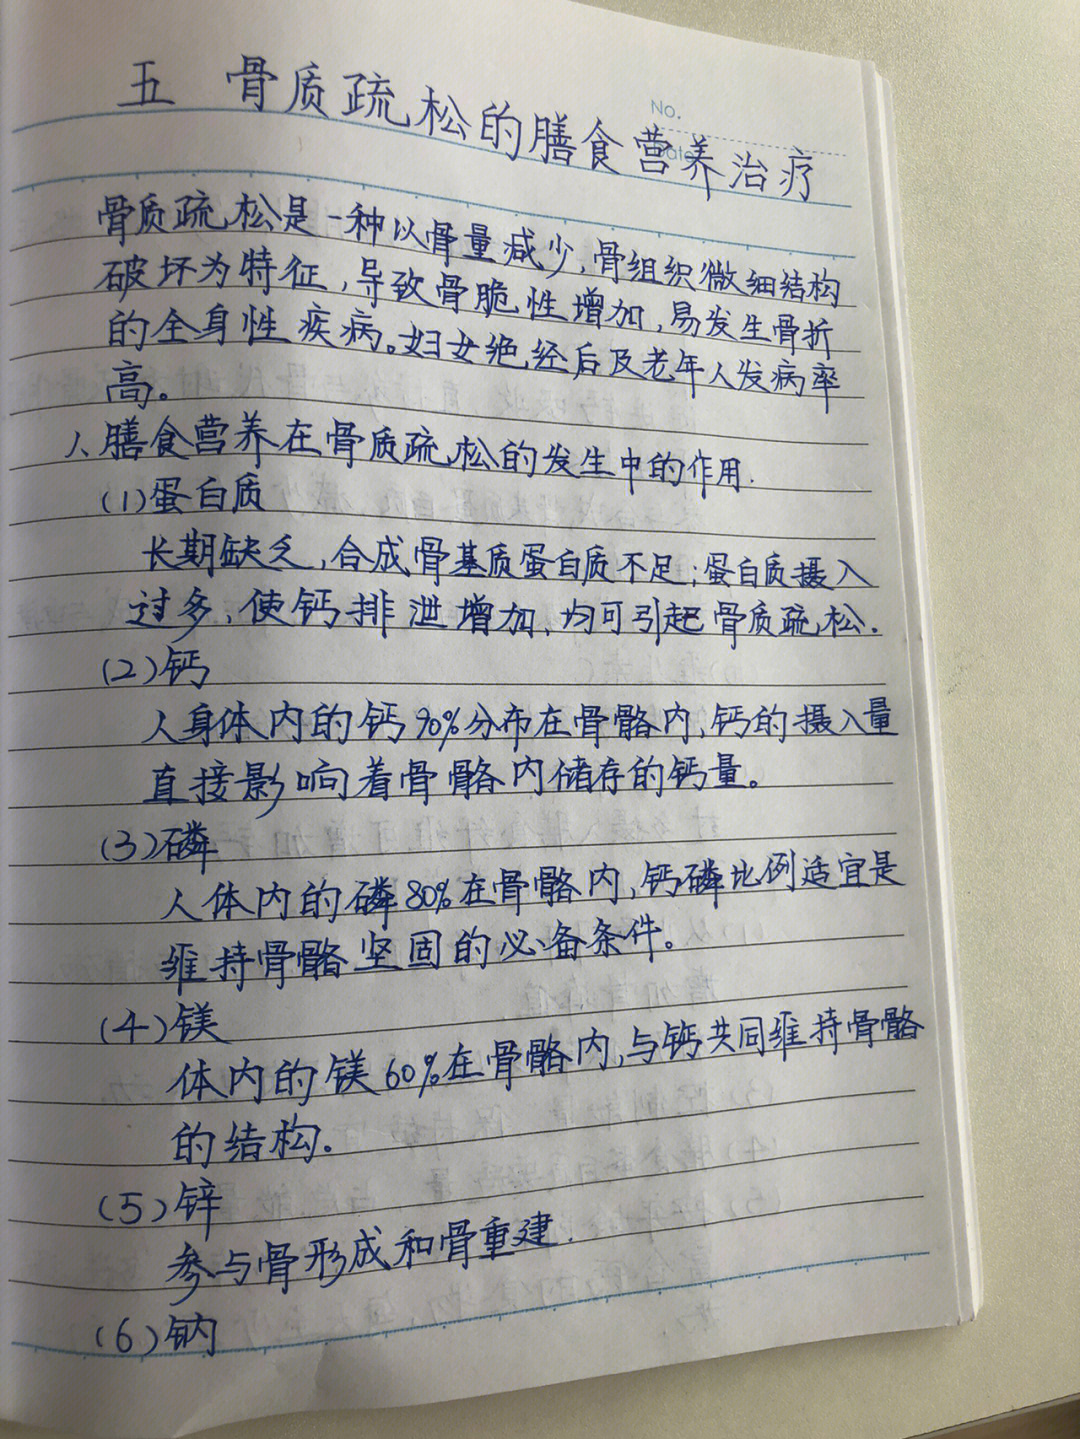 No.
Date
五 骨质疏松的膳食营养治疗
骨质疏松是一种以骨量减少,骨组织微细结构
破坏为特征,导致骨脆性增加,易发生骨折
的全身性疾病。妇女绝经后及老年人发病率
高。
1、膳食营养在骨质疏松的发生中的作用.
(1)蛋白质
长期缺乏,合成骨基质蛋白质不足;蛋白质摄入
过多,使钙排泄增加,均可引起骨质疏松.
(2)钙
人身体内的钙90%分布在骨骼内,钙的摄入量
直接影响着骨骼内储存的钙量。
(3)磷
人体内的磷80%在骨骼内,钙磷比例适宜是
维持骨骼坚固的必备条件。
(4)镁
体内的镁60%在骨骼内,与钙共同维持骨骼
的结构.
(5)锌
参与骨形成和骨重建.
(6)钠